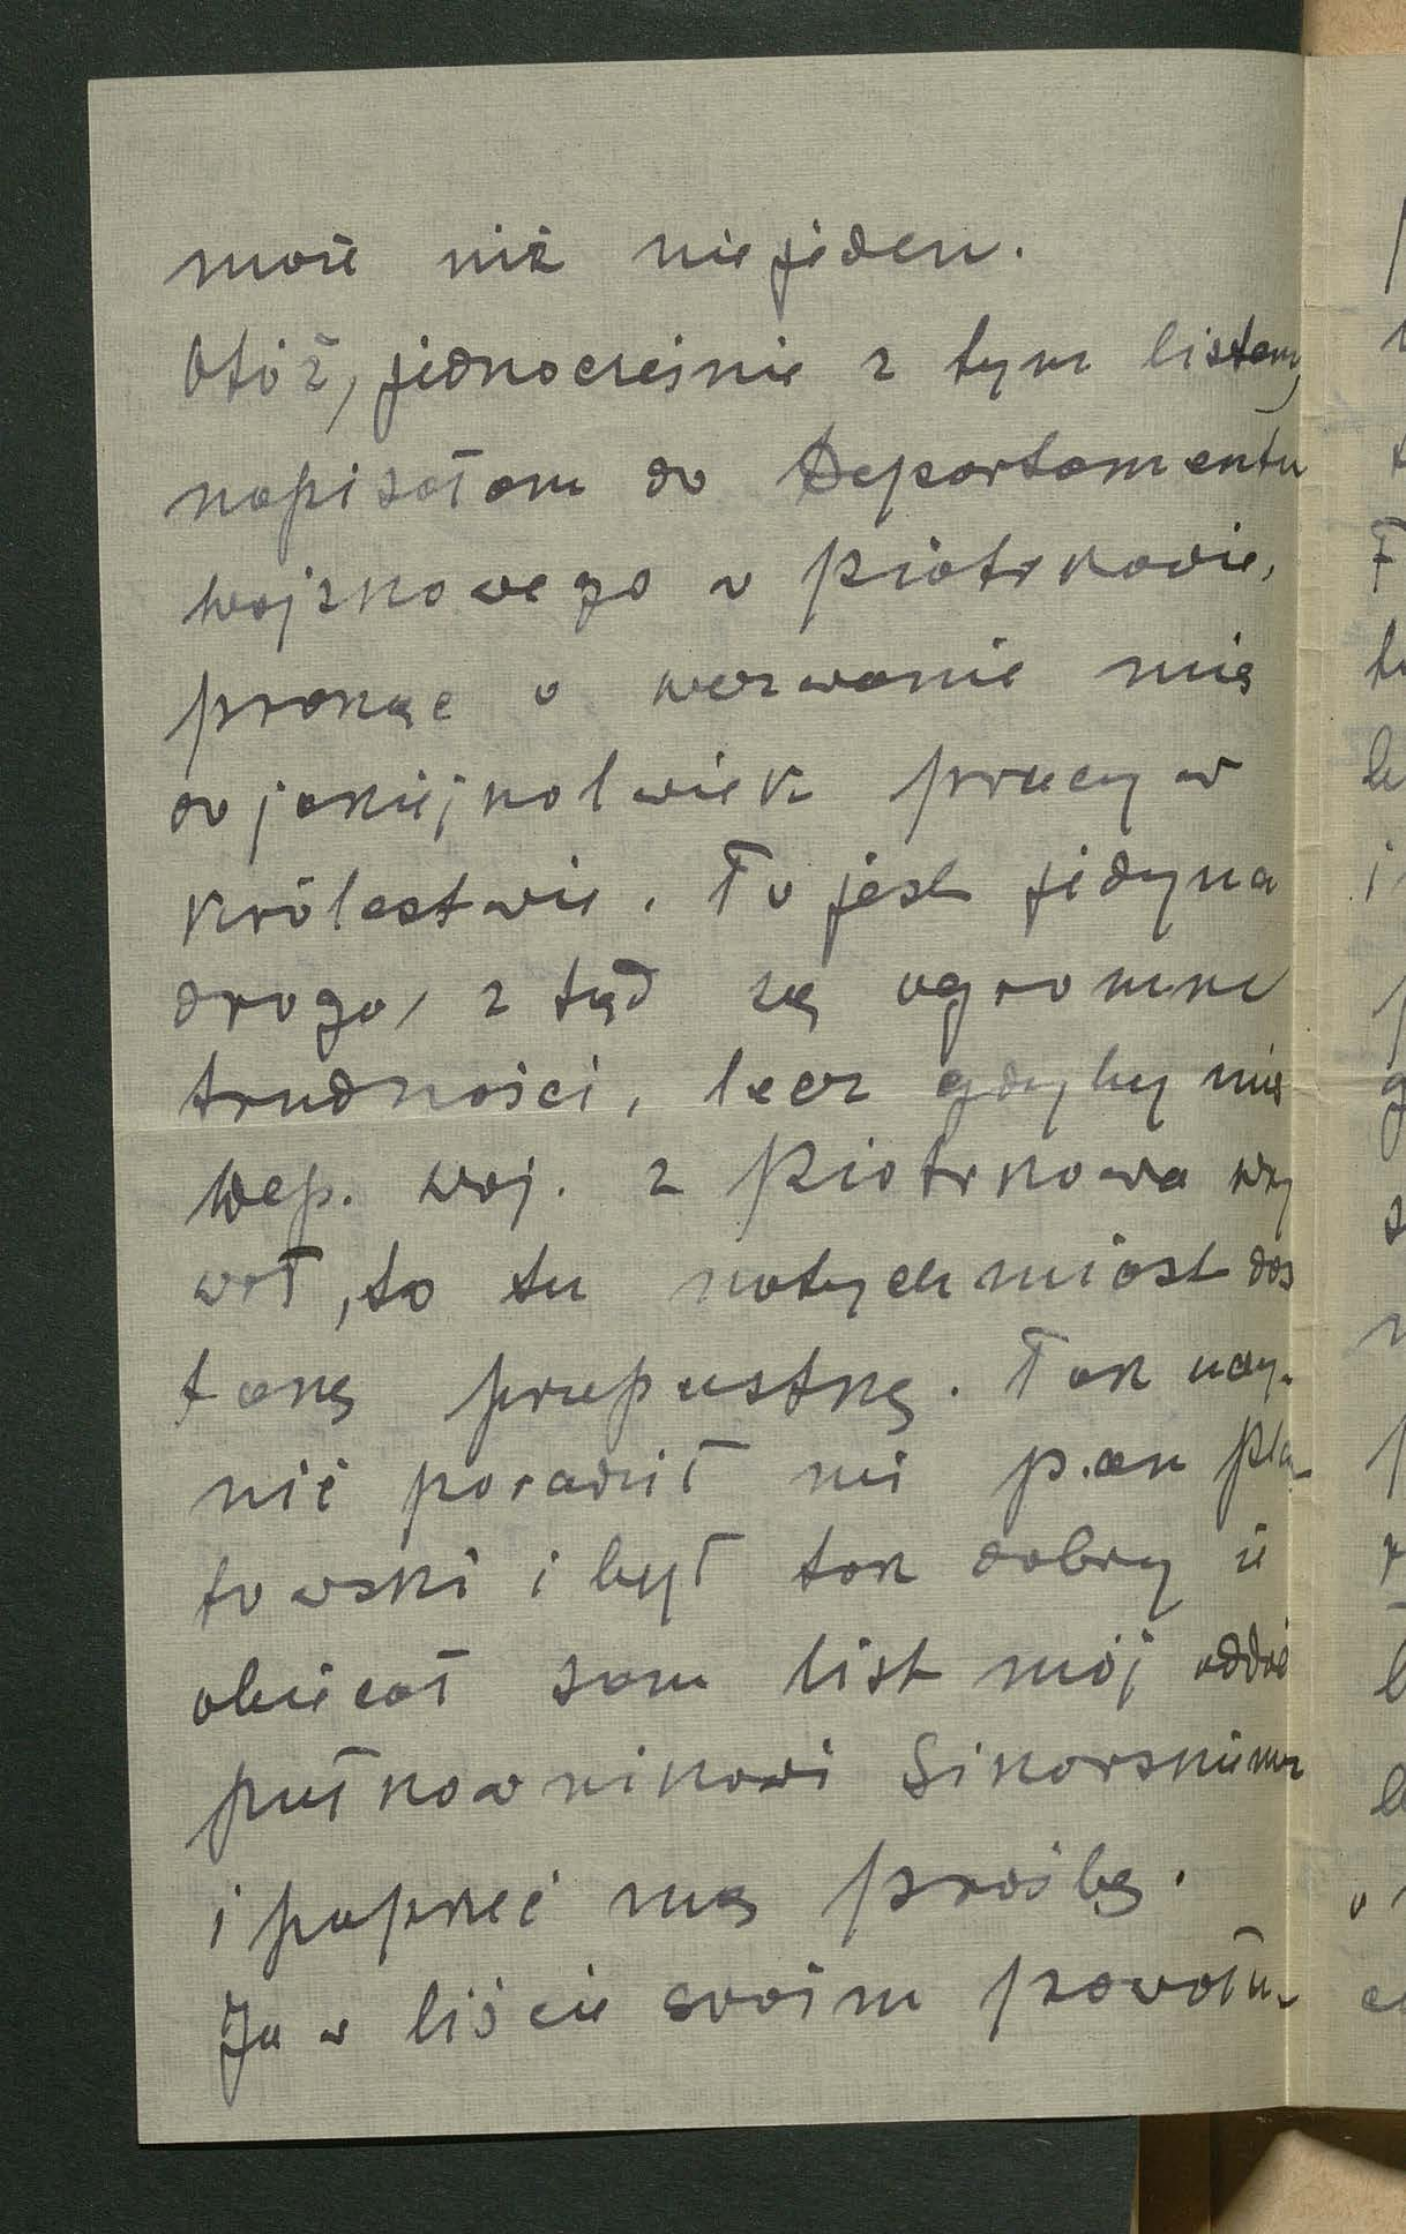 może niż niejeden.
Otóż, jednocześnie z tym listem,
napisałam do Departamentu
wojskowego w Piotrkowie,
prosząc o wezwanie mię
do jakiejkolwiek pracy w
Królestwie. To jest jedyna
droga, z tąd są ogromne
trudności, lecz gdyby mię
Dep. woj. z Piotrkowa wzy
wał, to tu natychmiast dos
tanę przepustkę. Tak uczy-
nić poradził mi pan
towski i był tak dobry iż
obiecał sam list mój oddać
pułkownikowi Sikorskiemu
i poprzeć mą prośbę.
Ja w liście swoim powołu-